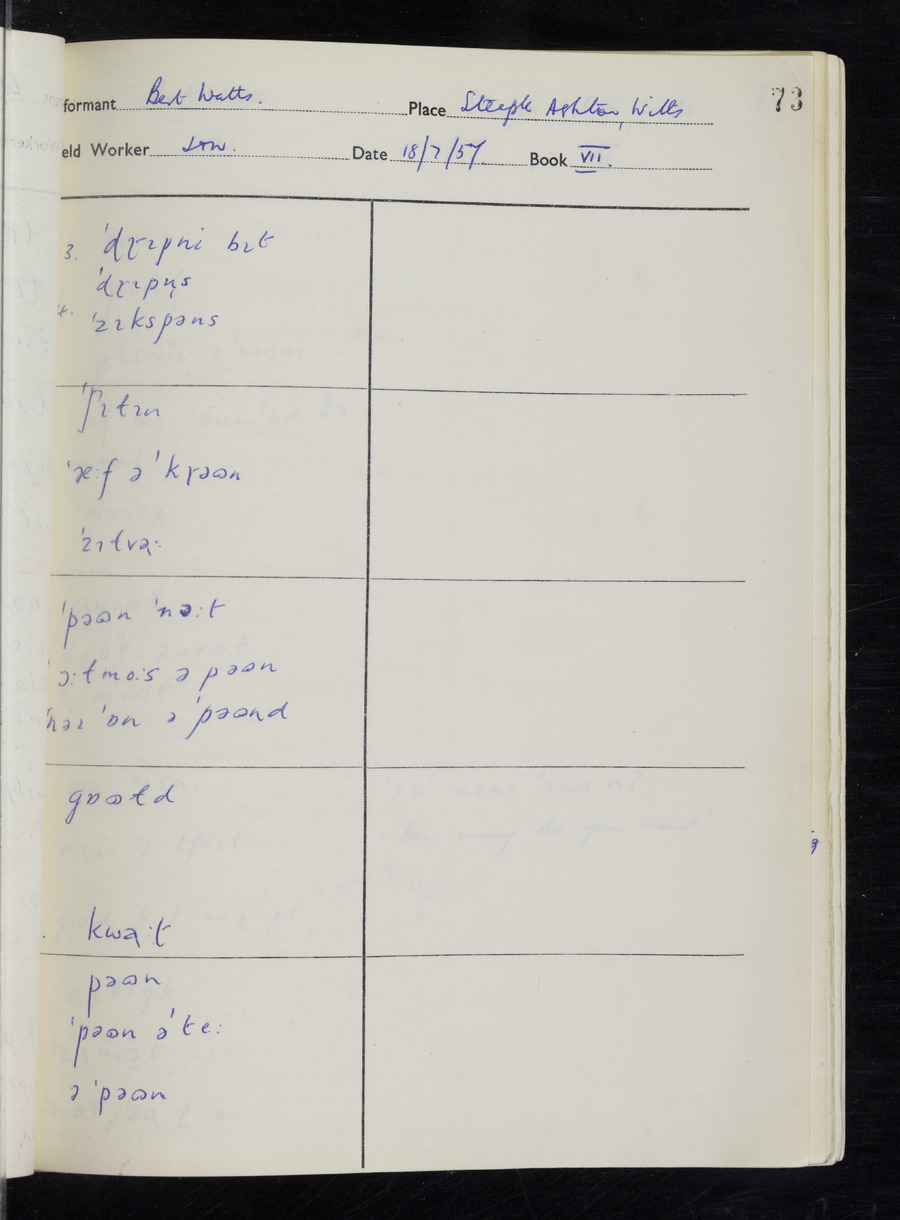 formant Bert Watts. Place Steeple Ashton, Wilts 73
eld Worker Date 18/7/57. Book VII.
3. ˈdɽɪpni bɪt
ˈdɽɪpn̩s
4. ˈzɪkspəns
ˈʃɪtɪn
ˈæ:f ə ˈkɽəʊn
ˈpəʊn ˈnə:t
ɔ:tmo:s ə pəʊn
ˈɒn ə ˈpəʊnd
gɒʊɫd
pəʊn
ˈpəʊn əˈte:
ə ˈpəʊn